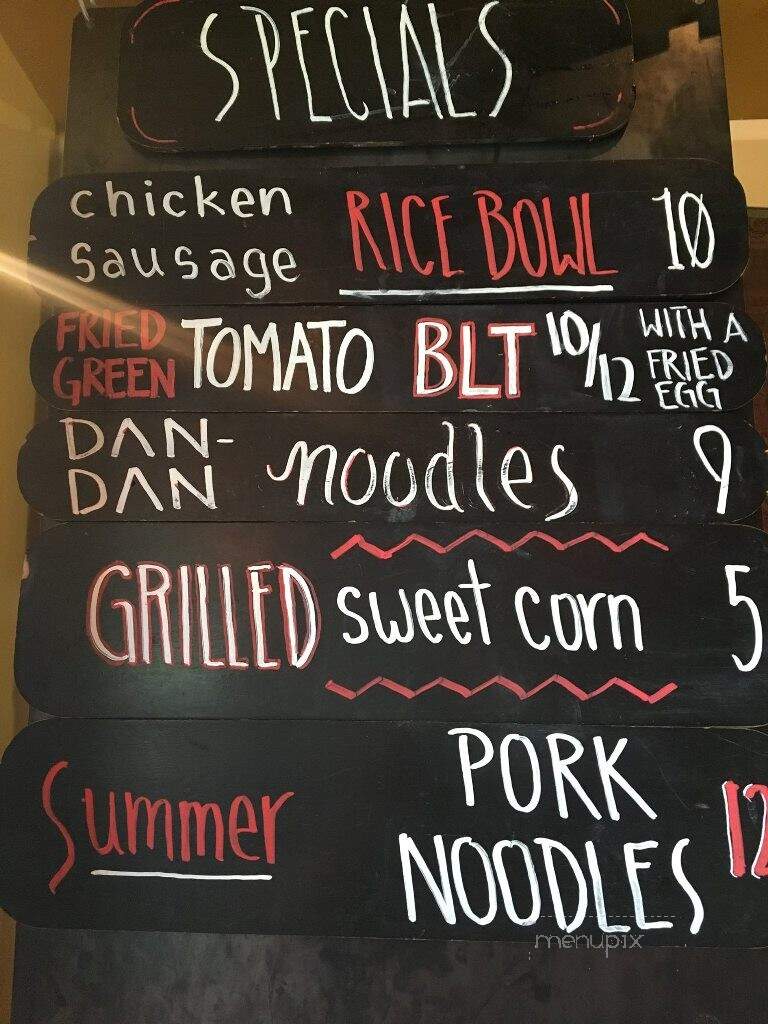 SPECIALS
chicken sausage RICE BOWL 10
FRIED GREEN TOMATO BLT 10/12 WITH A FRIED EGG
DAN-DAN noodles 9
GRILLED sweet corn 5
Summer PORK NOODLES 12
menupix